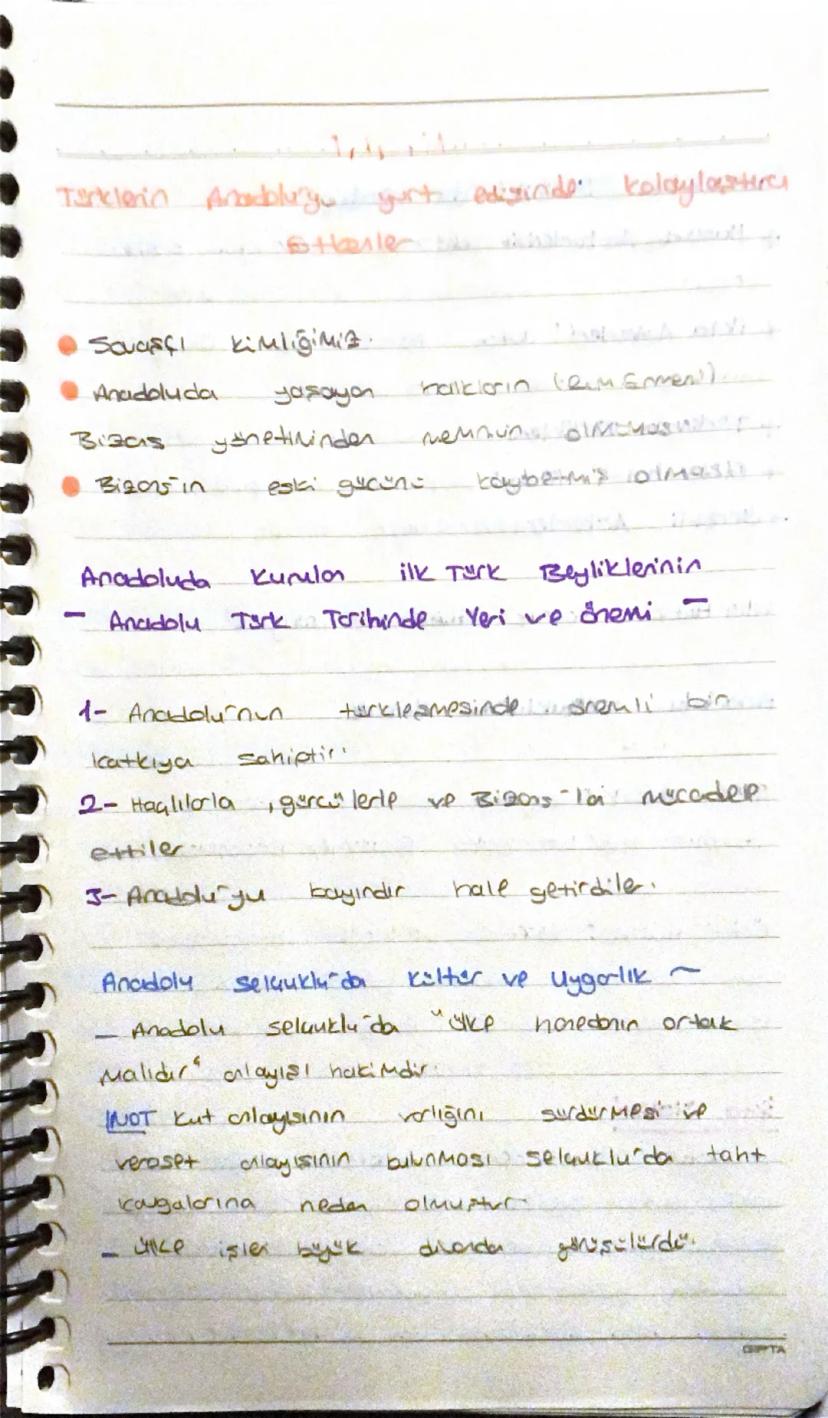 Türklerin Anadolu'yu yurt edişinde kolaylaştırıcı
Etkenler
Savaşçı kimliğimiz.
Anadoluda yaşayan halkların (Rum Ermeni)
Bizans yönetiminden memnun olmaması
Bizans'ın eski gücünü kaybetmiş olması
Anadoluda Kurulan ilk Türk Beyliklerinin
- Anadolu Türk Tarihinde Yeri ve önemi -
1- Anadolu'nun türkleşmesinde önemli bir
katkıya sahiptir.
2- Haçlılarla, gürcülerle ve Bizans'la mücadele
ettiler
3- Anadolu'yu bayındır hale getirdiler.
Anadolu selçuklu'da Kültür ve Uygarlık ~
- Anadolu selçuklu'da "ülke hanedanın ortak
malıdır" anlayışı hakimdir.
NOT Kut anlayışının varlığını sürdürmesi ve
veraset anlayışının bulunması selçuklu'da taht
kavgalarına neden olmuştur.
- ülke işleri büyük divanda görüşülürdü.
GIPTA